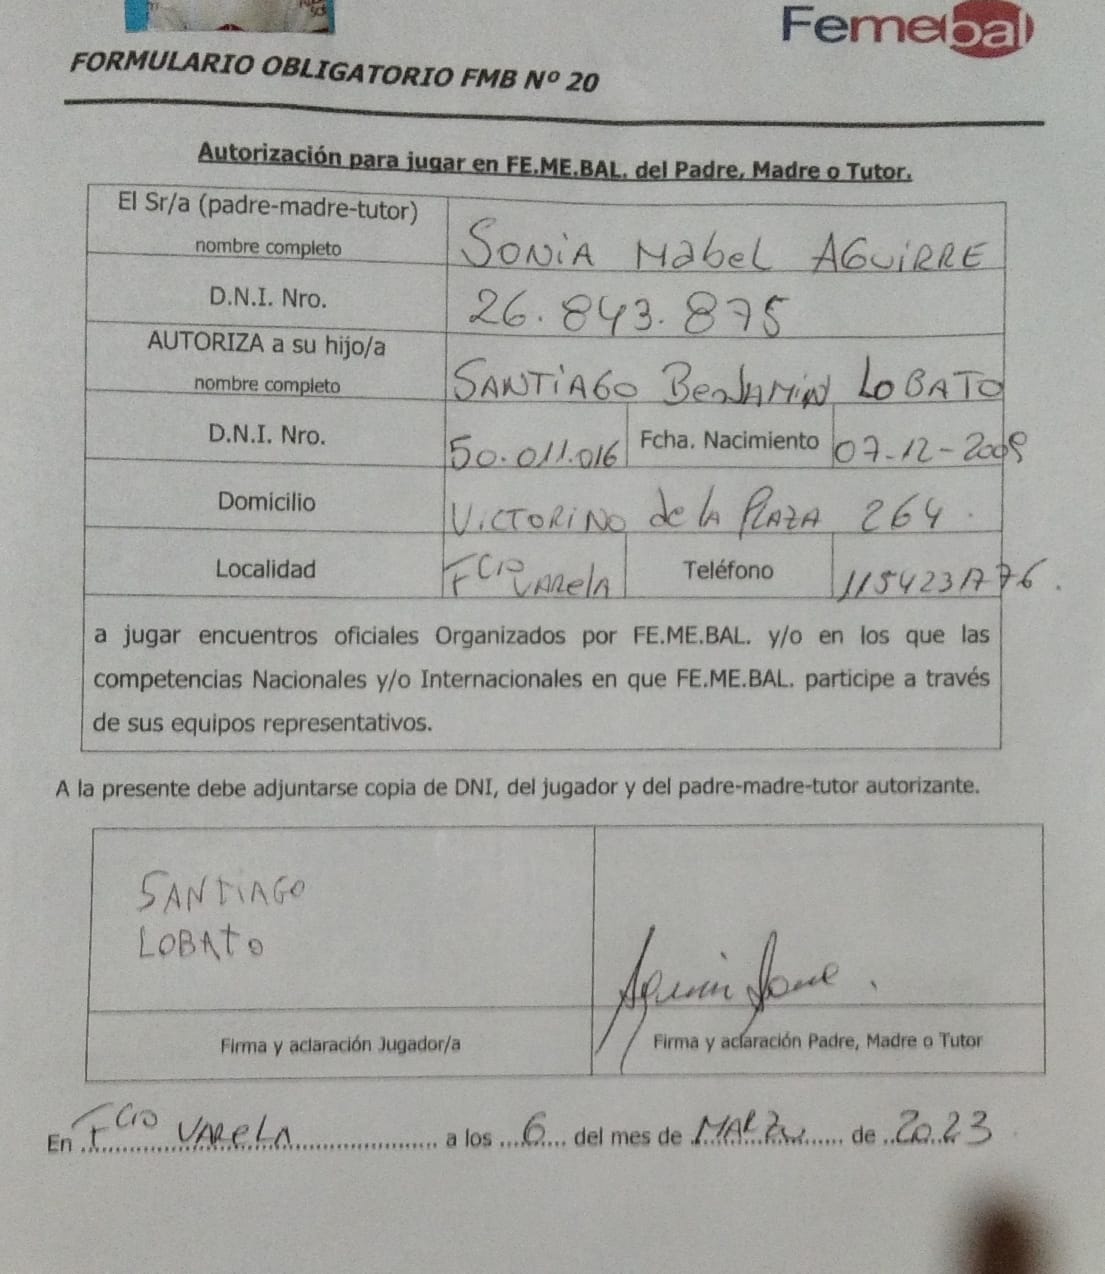 Femebal
FORMULARIO OBLIGATORIO FMB Nº 20
Autorización para jugar en FE.ME.BAL. del Padre, Madre o Tutor.
El Sr/a (padre-madre-tutor)
nombre completo
SONIA MabeL AGUIRRE
D.N.I. Nro.
26.843.875
AUTORIZA a su hijo/a
nombre completo
SANTIAGO BenJAMIN LOBATO
D.N.I. Nro.
50.011.016
Fcha. Nacimiento
07-12-2009
Domicilio
VICTORINO de LA PLAZA 264.
Localidad
Fcio VARelA
Teléfono
a jugar encuentros oficiales Organizados por FE.ME.BAL. y/o en los que las
competencias Nacionales y/o Internacionales en que FE.ME.BAL. participe a través
de sus equipos representativos.
A la presente debe adjuntarse copia de DNI, del jugador y del padre-madre-tutor autorizante.
SANTIAGO
LOBATO
Firma y aclaración Jugador/a
Firma y aclaración Padre, Madre o Tutor
En Fcio VAReLA a los 6 del mes de MARZO de 2023